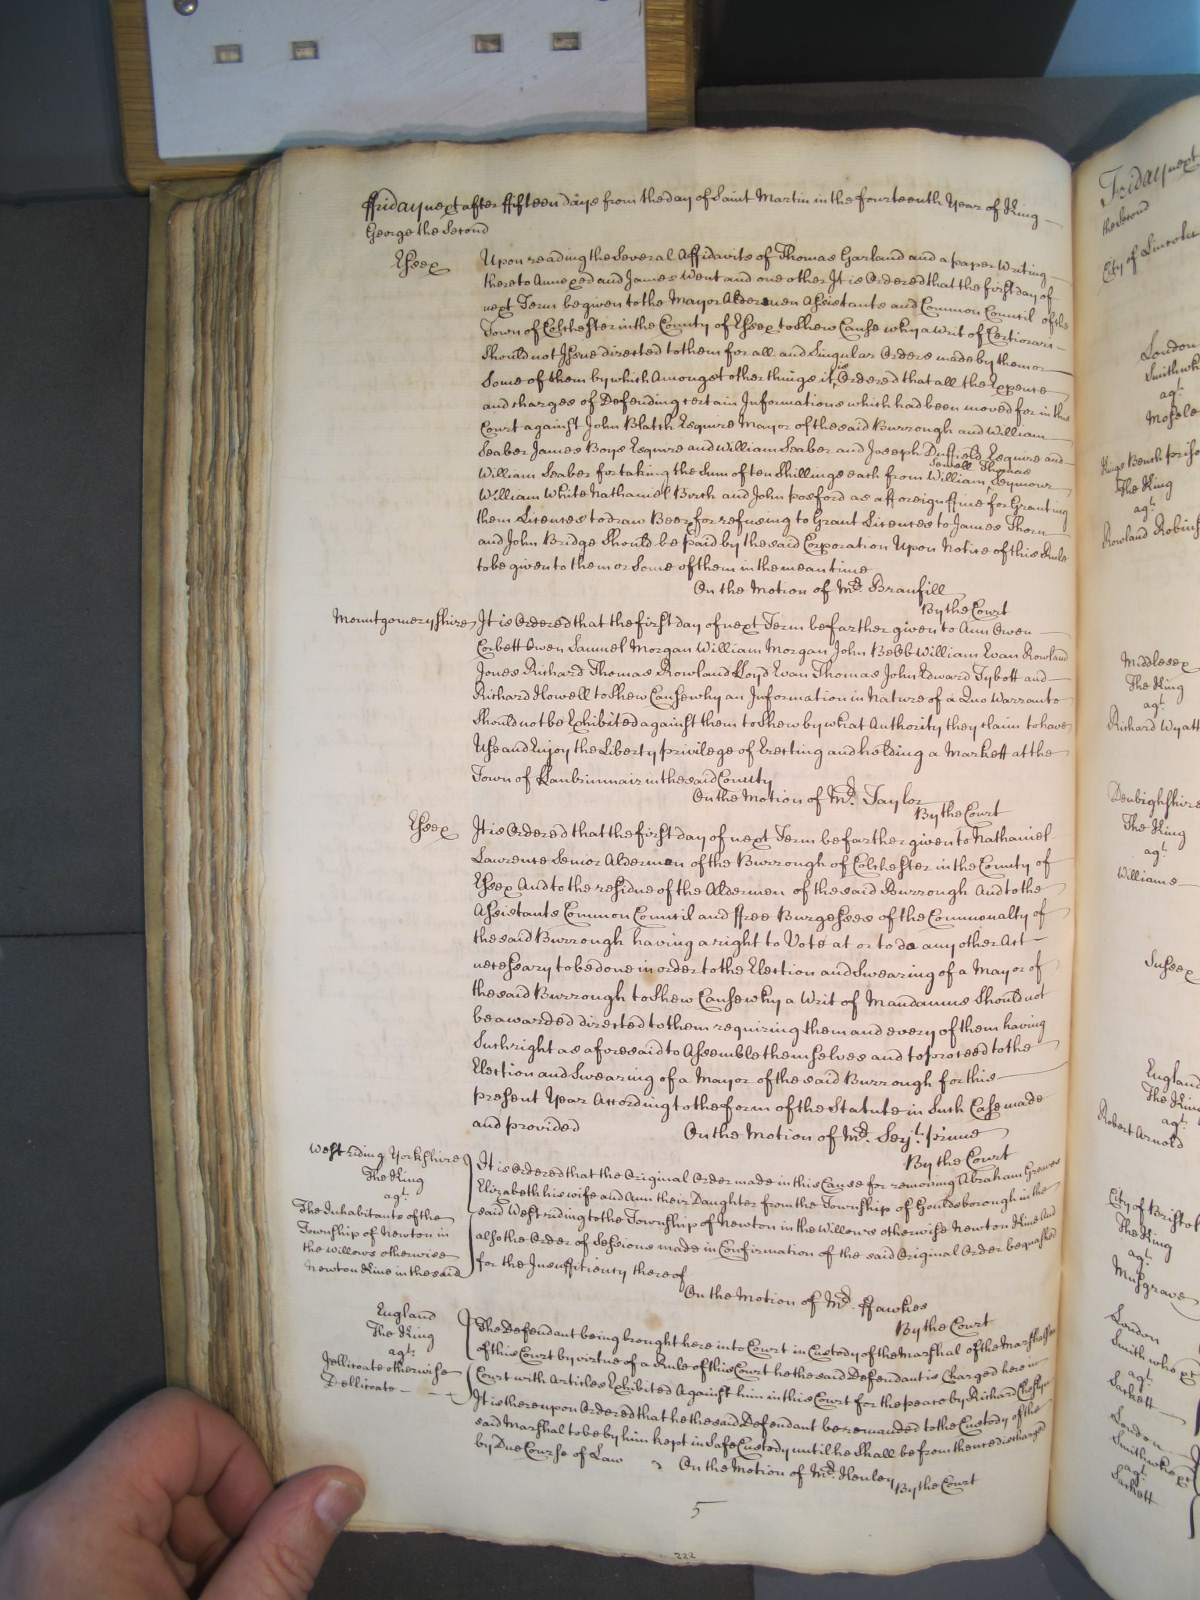 ffriday next after ffifteen days from the day of Saint Martin in the fourteenth Year of King
George the Second
Essex
Upon reading the Several Affidavits of Thomas Garland and a paper Writing
thereto Annexed and James Went and one other It is Ordered that the first day of
next Term be given to the Mayor Aldermen Assistants and Common Council of the
Town of Colchester in the County of Essex to Shew Cause why a Writ of Certiorari
Should not Issue directed to them for all and Singular Orders made by them or
Some of them by which Amongst other things it is Ordered that all the Expence
and charges of Defending certain Informations which had been moved for in this
Court against John Blatch Esquire Mayor of the said Burrough and William
Seaber James Boys Esquire and William Seaber and Joseph Duffield Esquire and
William Seaber for taking the Sum of ten Shillings each from William Sewell Thomas Seymour
William White Nathaniel Burch and John posford as a fforeign ffine for Granting
them Licences to draw Beer & for refusing to Grant Licences to James Thorn
and John Bridge Should be paid by the said Corporation Upon Notice of this Rule
to be given to them or Some of them in the mean time
On the Motion of Mr. Branfill
By the Court
Mountgomeryshire
It is Ordered that the first day of next Term be farther given to Ann Owen
Corbett Owen Samuel Morgan William Morgan John Bebb William Evan Rowland
Jones Richard Thomas Rowland Lloyd Evan Thomas John Edward Tybott and
Richard Howell to Shew Cause why an Information in Nature of a Quo Warranto
Should not be Exhibited against them to Shew by what Authority they claim to have
Use and Enjoy the Liberty privilege of Erecting and holding a Markett at the
Town of Llanbrinmair in the said County
On the Motion of Mr. Taylor
By the Court
Essex
It is Ordered that the first day of next Term be farther given to Nathaniel
Lawrence Senior Alderman of the Burrough of Colchester in the County of
Essex And to the residue of the Aldermen of the said Burrough And to the
Assistants Common Council and ffree Burgesses of the Commonalty of
the said Burrough having a right to Vote at or to do any other Act
necessary to be done in order to the Election and Swearing of a Mayor of
the said Burrough to Shew Cause why a Writ of Mandamus Should not
be awarded directed to them requiring them and every of them having
Such right as aforesaid to Assemble themselves and to proceed to the
Election and Swearing of a Mayor of the said Burrough for this
present Year According to the form of the Statute in Such Case made
and provided
On the Motion of Mr. Serjt. prime
By the Court
West riding Yorkshire
The King
agt.
The Inhabitants of the
Township of Newton in
the Willows otherwise
Newton Kine in the said
It is Ordered that the Original Order made in this Cause for removing Abraham Greaves
Elizabeth his wife and Ann their Daughter from the Township of Gouldsborough in the
said West riding to the Township of Newton in the Willows otherwise Newton Kine And
also the Order of Sessions made in Confirmation of the said Original Order be quashed
for the Insufficiency thereof
On the Motion of Mr. ffawkes
By the Court
England
The King
agt.
Jellicoate otherwise
Dellicoate
The Defendant being brought here into Court in Custody of the Marshal of the Marshalsea
of this Court by virtue of a Rule of this Court he the said Defendant is Charged here in
Court with Articles Exhibited Against him in this Court for the peace by Richard
It is thereupon Ordered that he the said Defendant be remanded to the Custody of the
said Marshal to be by him kept in Safe Custody until he Shall be from thence discharged
by Due Course of Law
On the Motion of Mr. Henley
By the Court
5
222
Friday next
the Second
City of Lincoln
London
Smith wh
agt.
Kings Bench priso
The King
agt.
Rowland Robins
Middlesex
The King
agt.
Richard Wyatt
Denbighshire
The King
agt.
Williams
Sussex
England
The Kin
agt.
Robert Arnold
City of Bristol
The King
agt.
Musgrave
London
Smith who
agt.
Sackett
London
Smith who
agt.
Sackett